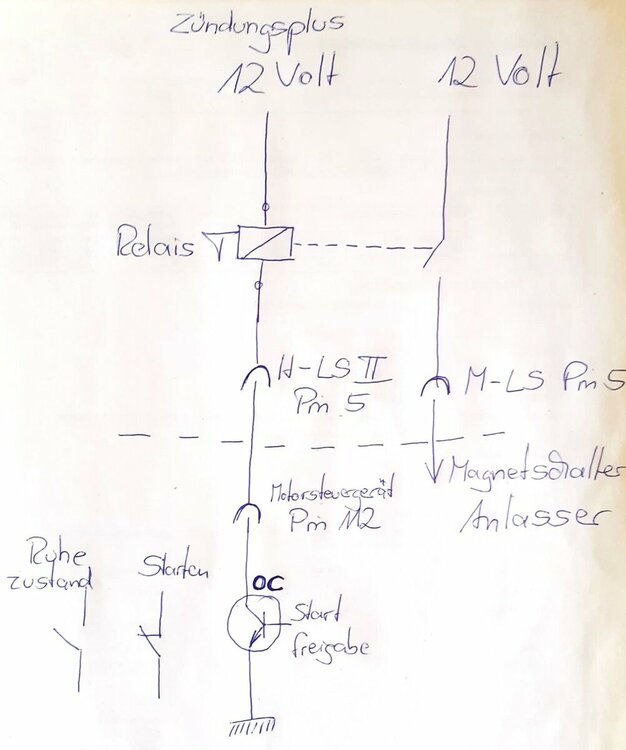 Zündungsplus
12 Volt
12 Volt
Relais
H-LS II
Pin 5
M-LS Pin 5
Motorsteuergerät
Pin M2
Magnetschalter
Anlasser
Ruhe
zustand
Starten
OC
Start
freigabe